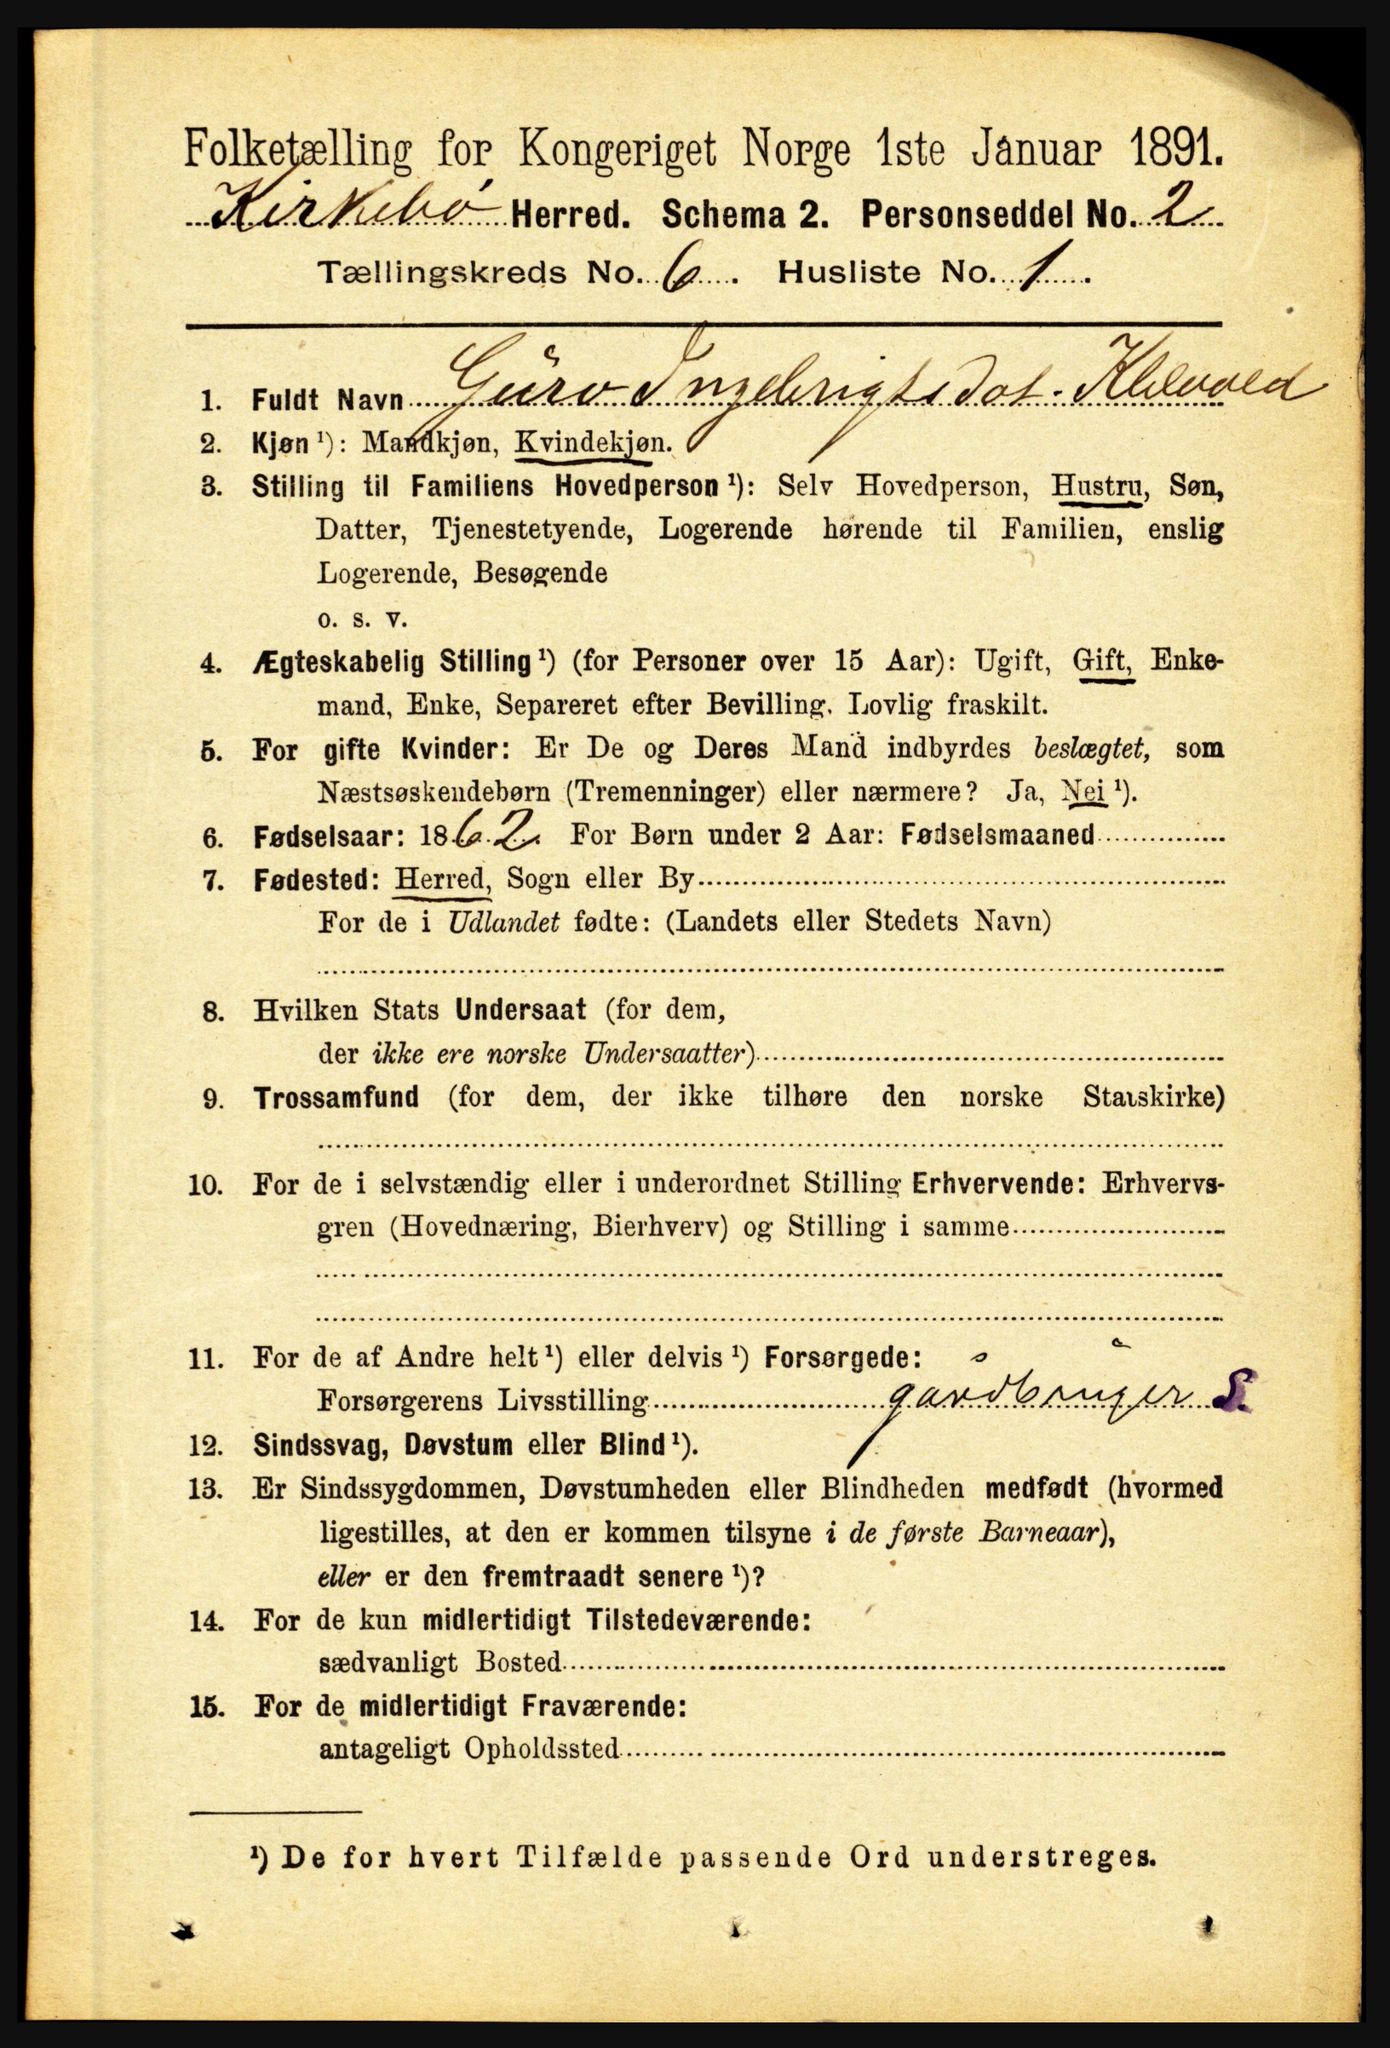 Folketælling for Kongeriget Norge 1ste Januar 1891.
Kirkebø Herred. Schema 2. Personseddel No. 2
Tællingskreds No. 6. Husliste No. 1.
1. Fuldt Navn Guro Ingebrigtsdat. Klævold
2. Kjøn ¹): Mandkjøn, Kvindekjøn.
3. Stilling til Familiens Hovedperson ¹): Selv Hovedperson, Hustru, Søn,
Datter, Tjenestetyende, Logerende hørende til Familien, enslig
Logerende, Besøgende
o. s. v.
4. Ægteskabelig Stilling ¹) (for Personer over 15 Aar): Ugift, Gift, Enke-
mand, Enke, Separeret efter Bevilling. Lovlig fraskilt.
5. For gifte Kvinder: Er De og Deres Mand indbyrdes beslægtet, som
Næstsøskendebørn (Tremenninger) eller nærmere? Ja, Nei ¹).
6. Fødselsaar: 1862. For Børn under 2 Aar: Fødselsmaaned
7. Fødested: Herred, Sogn eller By
For de i Udlandet fødte: (Landets eller Stedets Navn)
8. Hvilken Stats Undersaat (for dem,
der ikke ere norske Undersaatter)
9. Trossamfund (for dem, der ikke tilhøre den norske Statskirke)
10. For de i selvstændig eller i underordnet Stilling Erhvervende: Erhvervs-
gren (Hovednæring, Bierhverv) og Stilling i samme
11. For de af Andre helt ¹) eller delvis ¹) Forsørgede:
Forsørgerens Livsstilling gårdbruger S.
12. Sindssvag, Døvstum eller Blind ¹).
13. Er Sindssygdommen, Døvstumheden eller Blindheden medfødt (hvormed
ligestilles, at den er kommen tilsyne i de første Barneaar),
eller er den fremtraadt senere ¹)?
14. For de kun midlertidigt Tilstedeværende:
sædvanligt Bosted
15. For de midlertidigt Fraværende:
antageligt Opholdssted
¹) De for hvert Tilfælde passende Ord understreges.